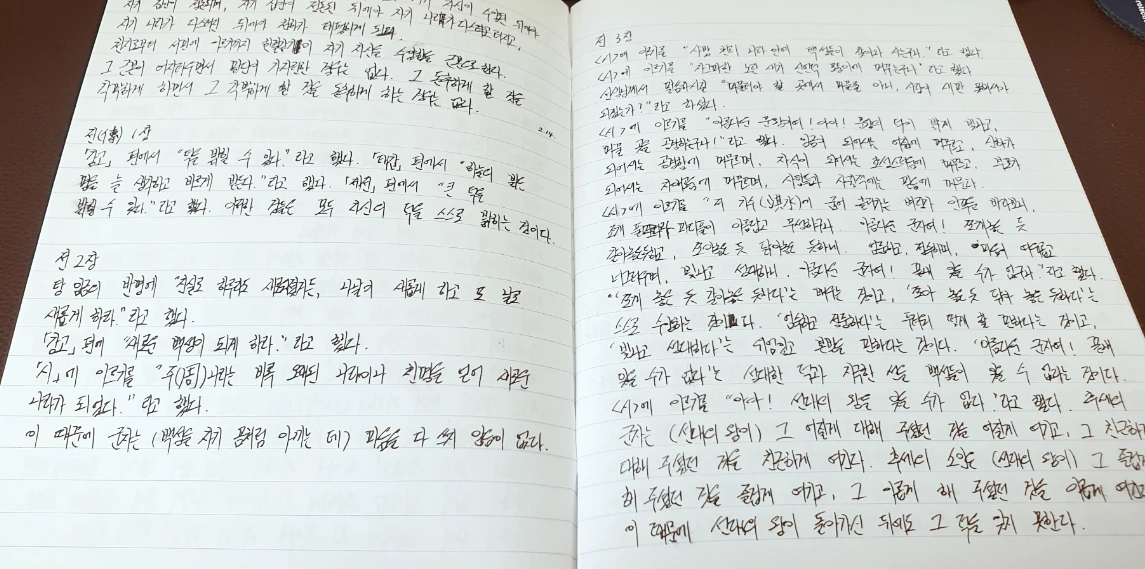 자기 나라가 다스려진 뒤에야 천하가 태평하게 된다.
천자로부터 서인에 이르기까지 한결같이 자기 자신을 수양함을 근본으로 한다.
그 근본이 어지러우면서 말단이 가지런한 경우는 없다. 그 돈독하게 할 것을
각박하게 하면서 그 각박하게 할 것을 돈독하게 하는 경우는 없다.
2.14.
전(傳) 1장
「강고」 편에서 “덕을 밝힐 수 있다.”라고 했다. 「태갑」 편에서 “하늘의 밝은
명을 늘 생각하고 바르게 받든다.”라고 했다. 「제전」 편에서 “큰 덕을
밝힐 수 있다.”라고 했다. 이러한 것들은 모두 자신의 덕을 스스로 밝히는 것이다.
전 2장
탕 임금의 반명에 “진실로 하루라도 새로워졌거든, 나날이 새롭게 하고 또 날로
새롭게 하라.”라고 했다.
「강고」 편에 “새로운 백성이 되게 하라.”라고 했다.
「시」에 이르기를 “주(周)나라는 비록 오래된 나라이나 천명을 얻어 새로운
나라가 되었다.”라고 했다.
이 때문에 군자는 (백성을 자기 몸처럼 아끼는 데) 마음을 다 쓰지 않음이 없다.
전 3장
<시>에 이르길 “사방 천리 나라 안이 백성들이 살아가 사는구나.”라고 했다.
<시>에 이르기를 “자그마한 노란 새가 산언덕 황이에 머무는구나”라고 했다.
선생님께서 말씀하시길 “머물러야 할 곳에서 머물줄 아니, 사람이 새만 못해서야
되겠는가!”라고 하셨다.
<시>에 이르기를 “아름다운 문왕이여! 아아! 문왕의 덕이 밝게 빛나고,
머물 곳을 공경하는구나!”라고 했다. 임금이 되어서는 어짊에 머무르고, 신하가
되어서는 공경함에 머무르며, 자식이 되어서는 효성스러움에 머무르고, 부모가
되어서는 자애로움에 머무르며, 사람들과 사귈때에는 믿음에 머무른다.
<시>에 이르기를 “저 기수(淇水)의 물이 굽이치는 벼랑의 언덕을 바라보니,
푸른 왕대의 마디들이 아름답고 무성하구나. 아름다운 군자여! 쪼개놓은 듯
갈아놓은듯하고, 쪼아놓은 듯 닦아놓은 듯하며. 엄숙하고, 진중하며, 마음이 여유롭고
너그러우며, 빛나고 성대하니. 아름다운 군자여! 끝내 잊을 수가 없구나”라고 했다.
‘쪼개 놓은 듯 갈아놓은 듯하다’는 배우는 것이고, ‘쪼아 놓은 듯 닦아 놓은 듯하다’는
스스로 수양하는 것이다. ‘엄숙하고 진중하다’는 두려워 떨게 할 만하다는 것이고,
‘빛나고 성대하다’는 위엄있고 본받을 만하다는 것이다. ‘아름다운 군자여! 끝내
잊을 수가 없다’는 성대한 덕과 지극한 선을 백성들이 잊을 수 없다는 것이다.
<시>에 이르기를 “아아! 선대의 왕을 잊을 수가 없다.”라고 했다. 후세의
군자는 (선대의 왕이) 그 어질게 대해 주셨던 것을 어질게 여기고, 그 친근하게
대해 주셨던 것을 친근하게 여긴다. 후세의 소인은 (선대의 왕이) 그 즐겁게
해 주셨던 것을 즐겁게 여기고, 그 이롭게 해 주셨던 것을 이롭게 여긴다
이 때문에 선대의 왕이 돌아가신 뒤에도 그 덕을 잊지 못한다.